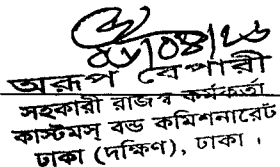 ০৮/০৪/২৬
অরূপ বেপারী
সহকারী রাজস্ব কর্মকর্তা
কাস্টমস্ বন্ড কমিশনারেট
ঢাকা (দক্ষিণ), ঢাকা ।